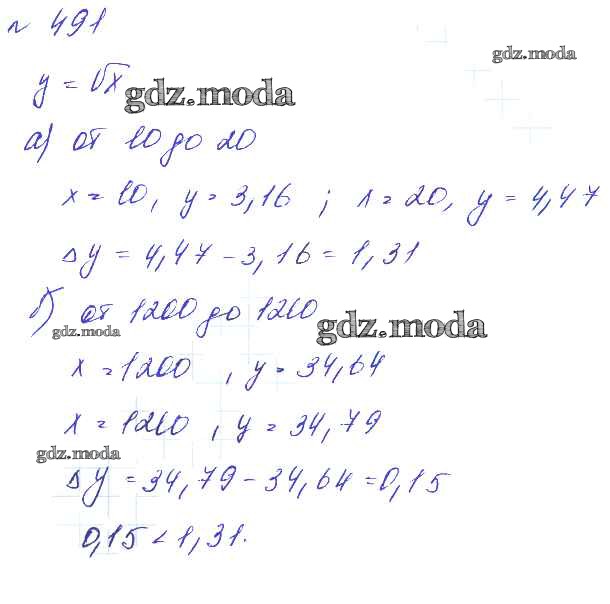 № 491
gdz.moda
y = √x
gdz.moda
а) от 10 до 20
x = 10, y = 3,16 ; x = 20, y = 4,47
Δy = 4,47 - 3,16 = 1,31
б) от 1200 до 1210
gdz.moda
gdz.moda
x = 1200 , y = 34,64
x = 1210 , y = 34,79
gdz.moda
Δy = 34,79 - 34,64 = 0,15
0,15 < 1,31.